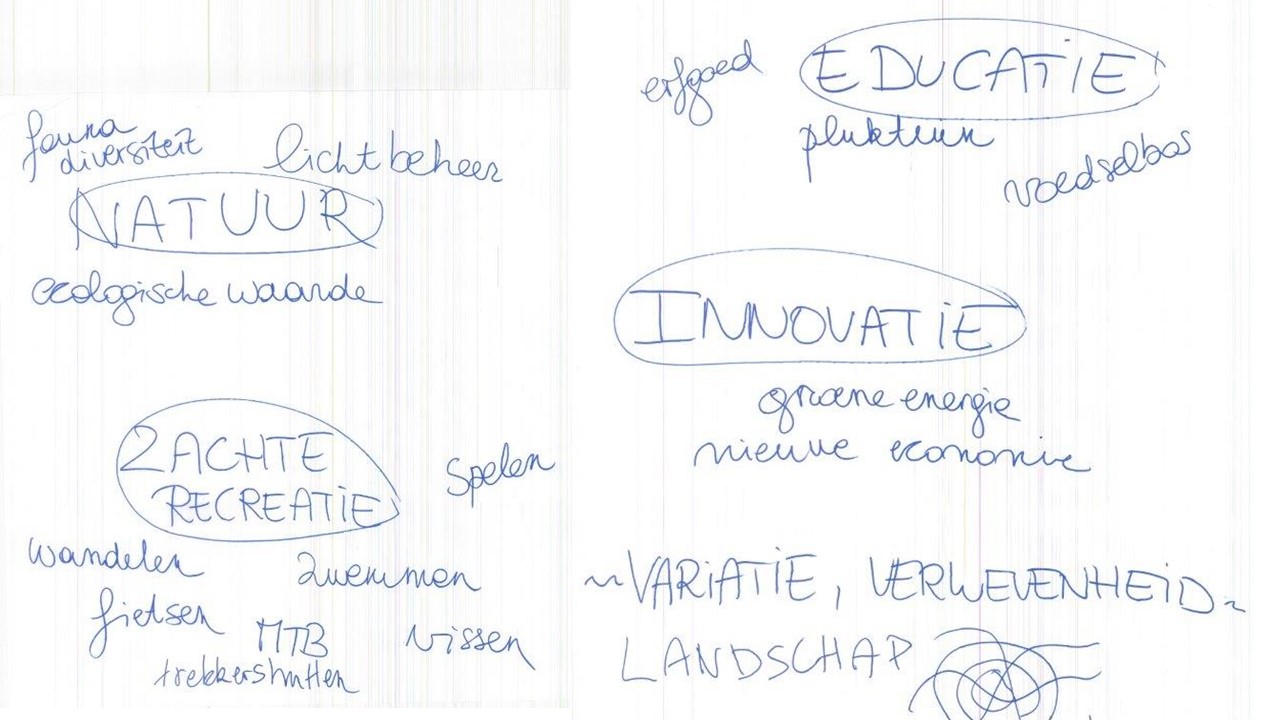 fauna
diversiteit
lichtbeheer
NATUUR
ecologische waarde
ZACHTE
RECREATIE
spelen
wandelen
zwemmen
fietsen
MTB
vissen
trekkershutten
erfgoed
EDUCATIE
pluktuin
voedselbos
INNOVATIE
groene energie
nieuwe economie
~VARIATIE, VERWEVENHEID~
LANDSCHAP